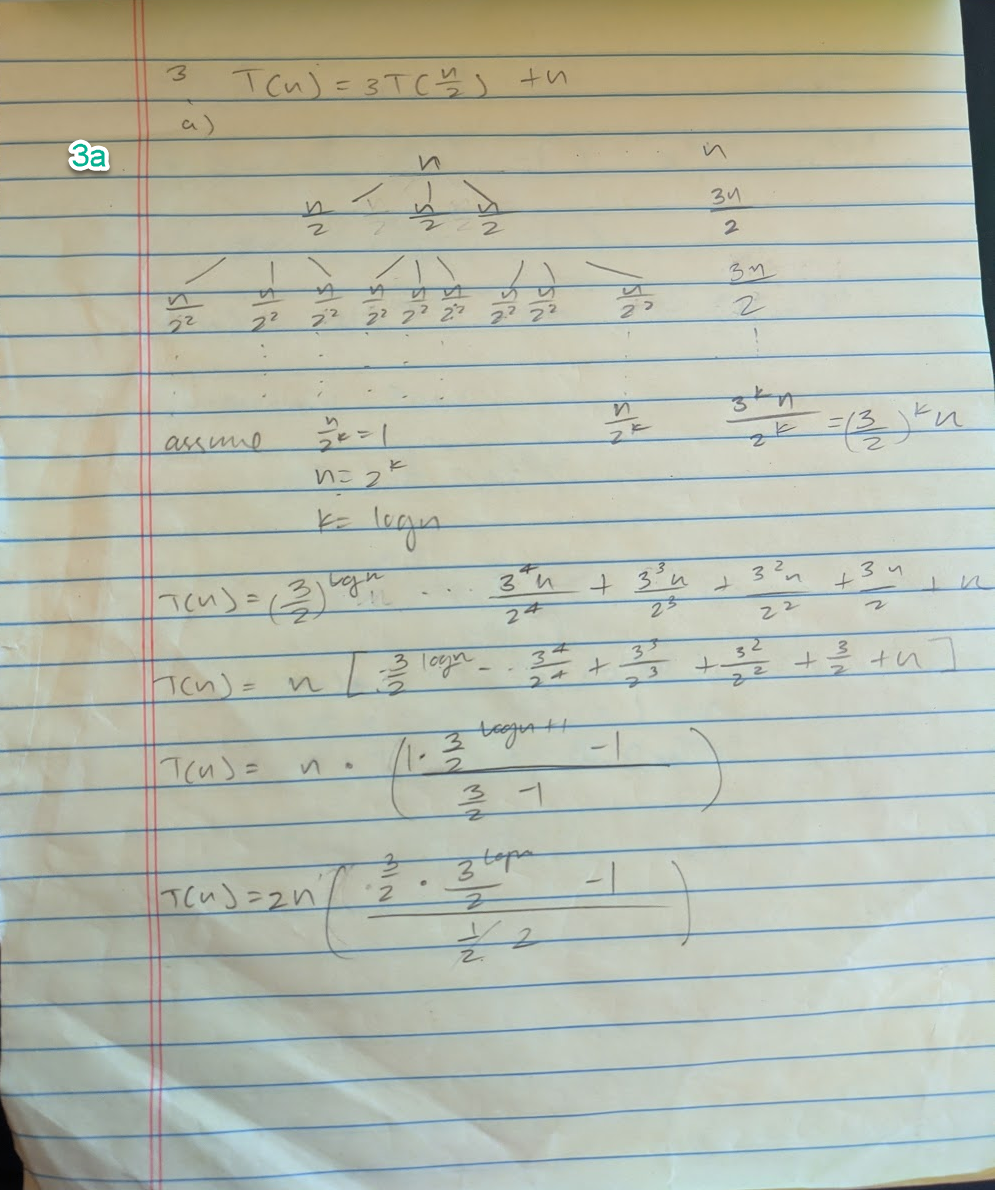 3 T(n) = 3T(n/2) + n
a)
3a
n n
n/2 n/2 n/2 3n/2
n/2² n/2² n/2² n/2² n/2² n/2² n/2² n/2² n/2² 3n/2
assume n/2^k = 1 n/2^k 3^k n/2^k = (3/2)^k n
n = 2^k
k = log n
T(n) = (3/2)^log n n ... 3⁴n/2⁴ + 3³n/2³ + 3²n/2² + 3n/2 + n
T(n) = n [3/2^log n - . . 3⁴/2⁴ + 3³/2³ + 3²/2² + 3/2 + n]
T(n) = n · (1 · 3/2^log n+1 - 1 / 3/2 - 1)
T(n) = 2n (3/2 · 3^log n/2 - 1 / 1/2 2)